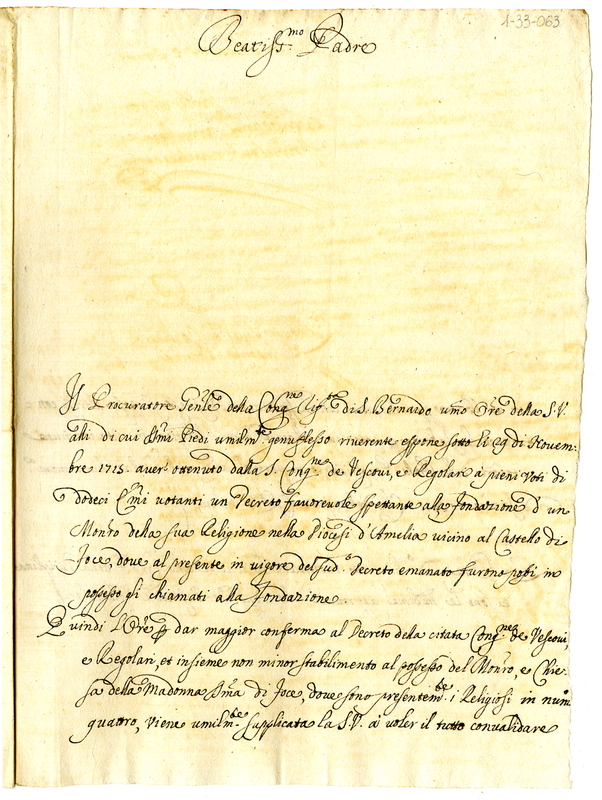 1-33-063
Beatiss.mo Padre
Il Procuratore Gen̅le della Cong.ne di S. Bernardo um̅o Ore della S.V.
alli di cui S̅mi Piedi umilm.te genuflesso riverente espone sotto li 29 di Novem-
bre 1715. aver ottenuto dalla S. Cong.ne de Vescovi, e Regolari à pieni voti di
dodeci E̅mi votanti un Decreto favorevole spettante alla fondazione d'un
Mon̅ro della sua Religione nella Diocesi d'Amelia vicino al Castello di
Foce, dove al presente in vigore del sud.o Decreto emanato furono posti in
possesso gli chiamati alla fondazione
Quindi l'Ore p dar maggior conferma al Decreto della citata Cong.ne de Vescovi,
e Regolari, et insieme non minor stabilimento al possesso del Mon̅ro, e Chie-
sa della Madonna S̅ma di Foce, dove sono presentem.te i Religiosi in num.o
quattro, viene umilm.te supplicata la S.V. à voler il tutto convalidare